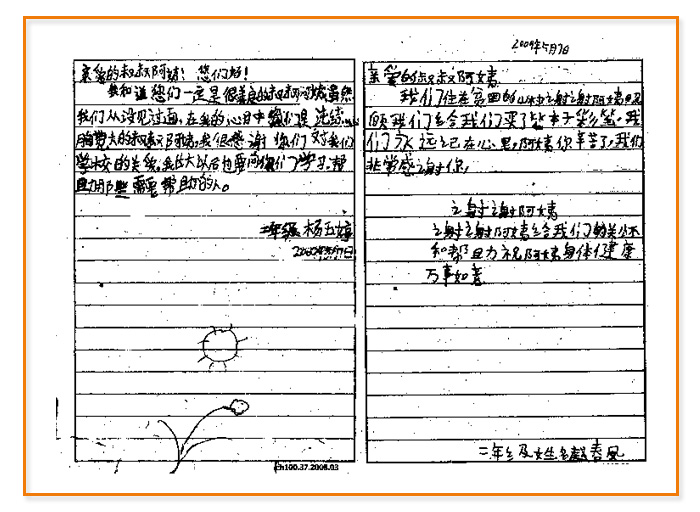 亲爱的叔叔阿姨！您们好！
我知道您们一定是很善良的叔叔阿姨虽然
我们从没见过面，在我的心目中您们是
的叔叔阿姨，我很感谢你们对我们
学校的关爱。我长大以后也要向你们学习，帮
助那些需要帮助的人。
二年级 杨玉婷
2009年5月7日
ch100.37.2008.03
2009年5月7日
亲爱的叔叔阿姨
我们住在 的山 谢谢阿姨
我们给我们买了 本子彩笔，我
们永远记在心里，阿姨你辛苦了，我们
非常感谢你，
谢谢阿姨
谢谢阿姨给我们的关怀
和帮且力祝阿姨身体健康
万事如意
二年级姓名 春风